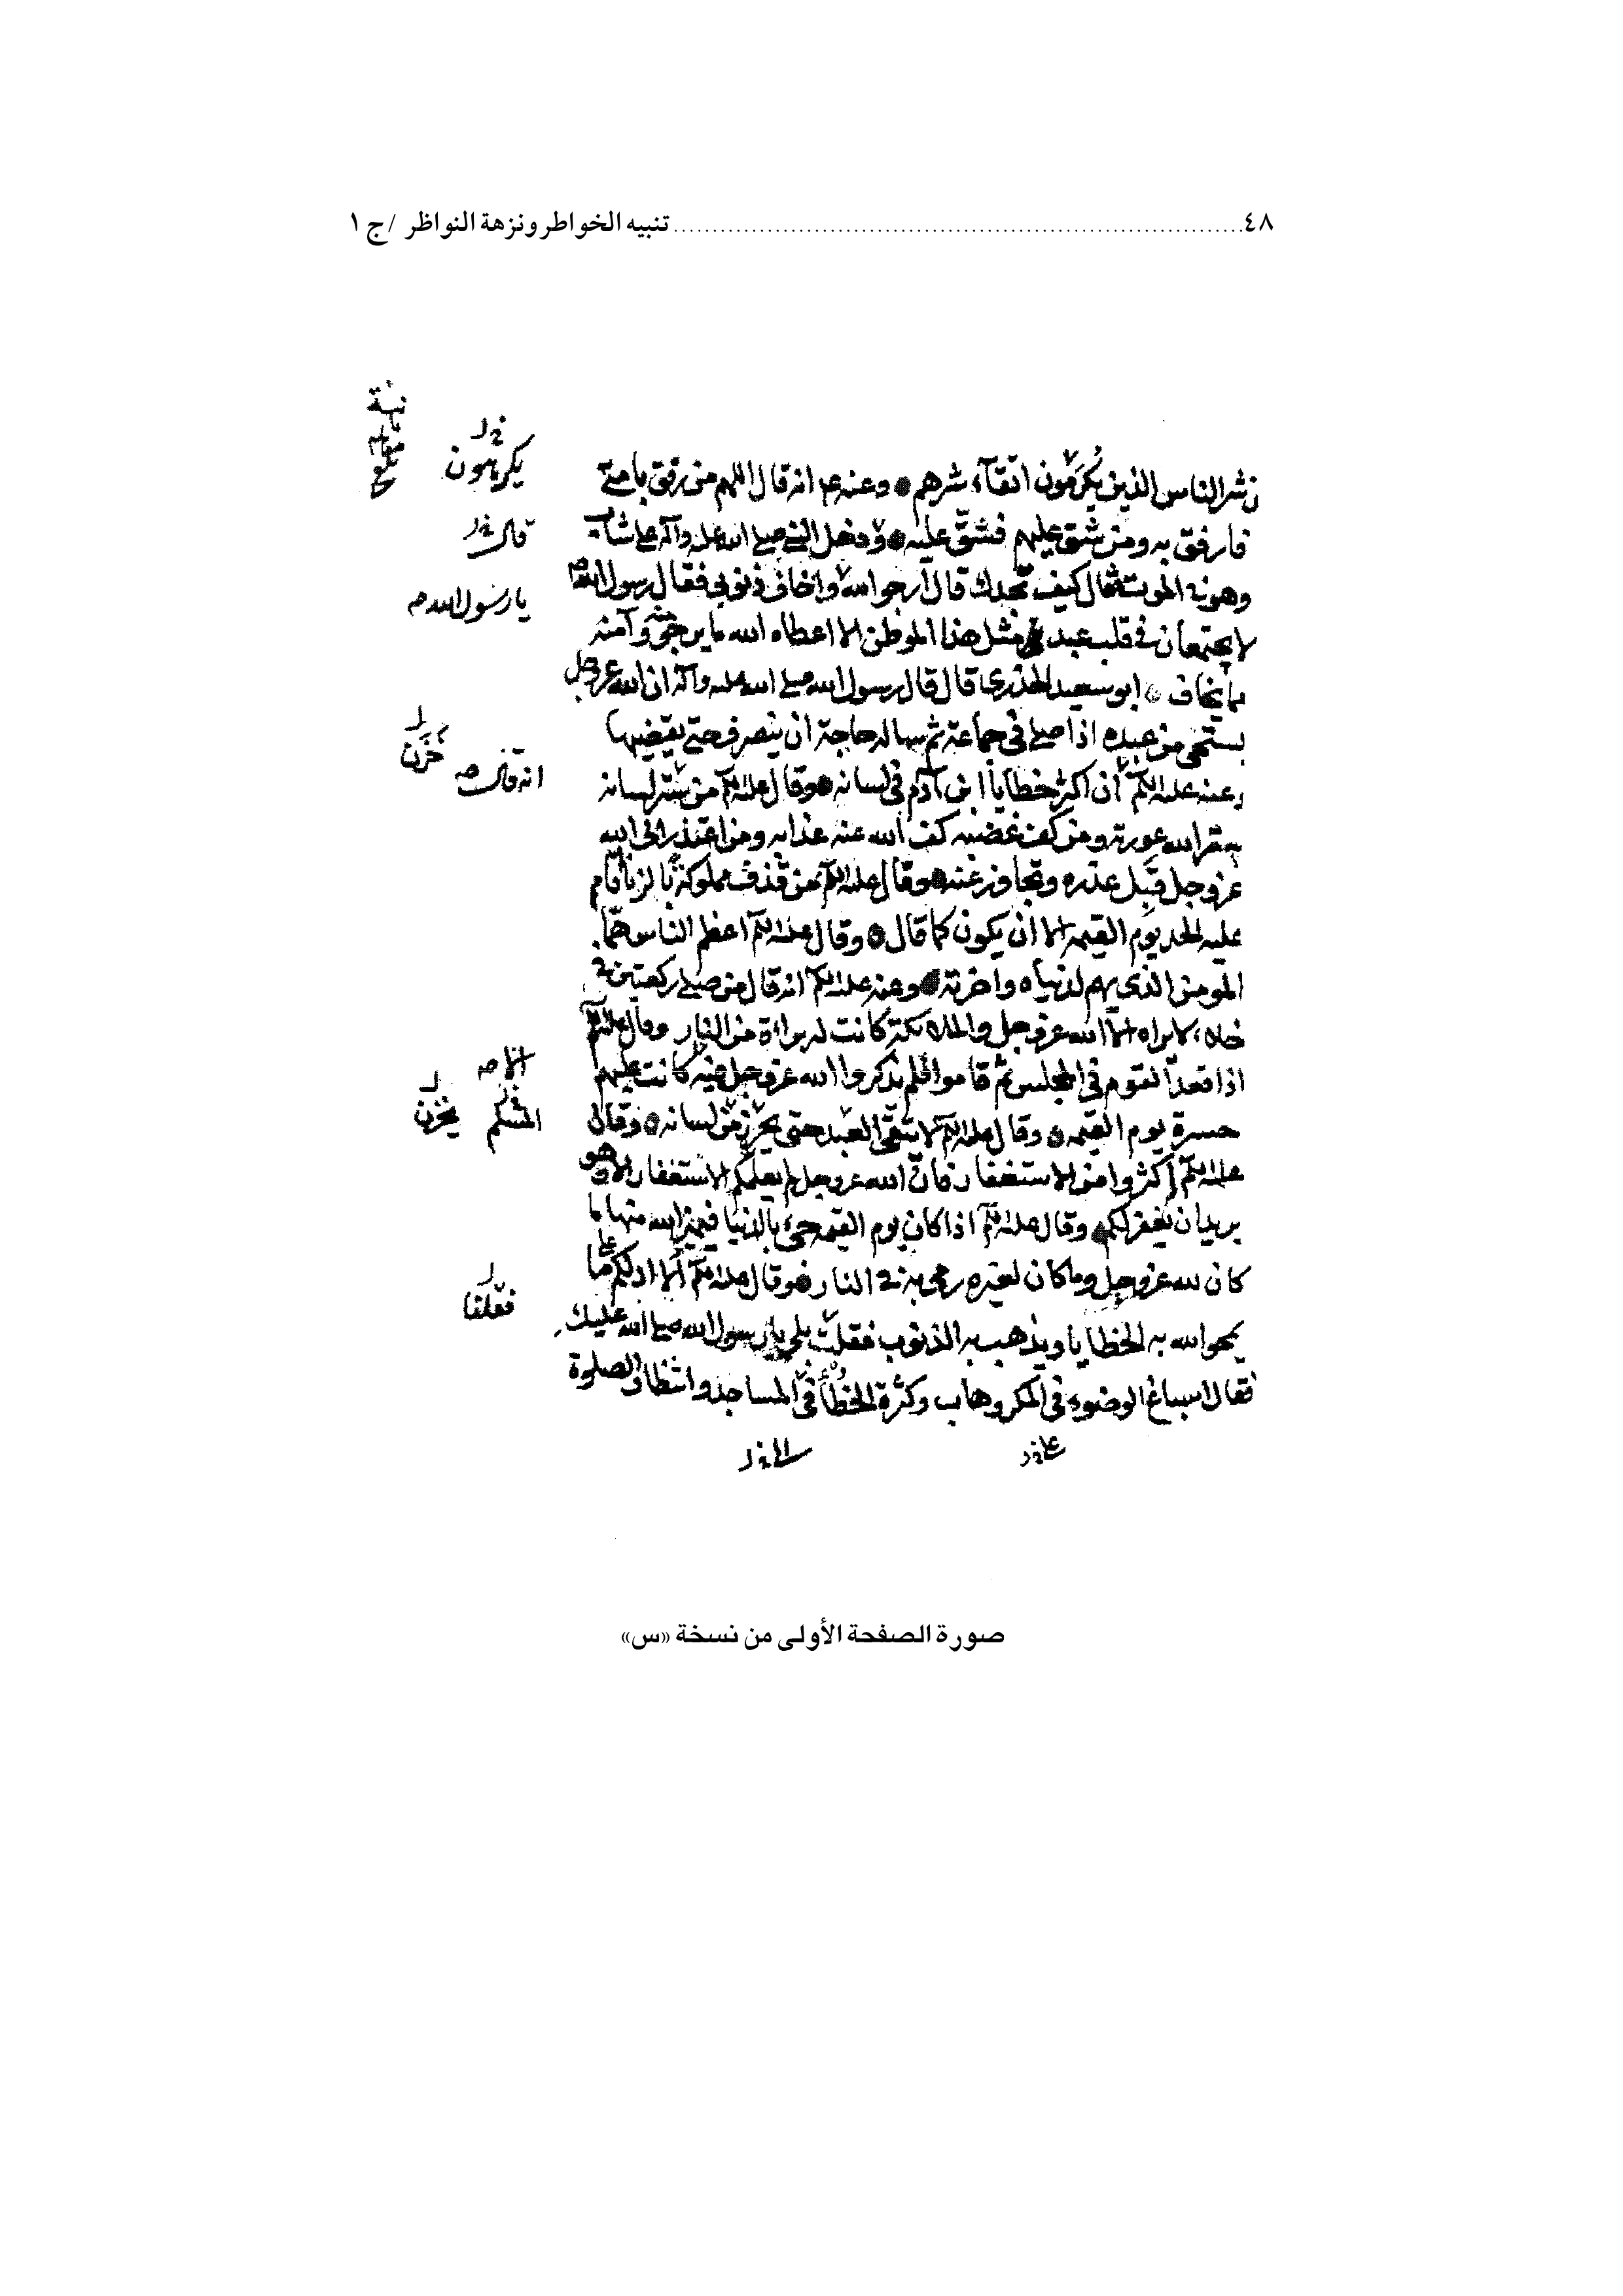 ٤٨ ........ تنبيه الخواطر ونزهة النواظر / ج ١
شر الناس الذين يكرمون اتقآء شرهم وعنه ع انه قال اللهم من رفق بامتي
فارفق به ومن شق عليهم فشق عليه ودخل النبي صلى الله عليه وآله على شاب
وهو في الموت فقال كيف تجدك قال أرجو الله واخاف ذنوبي فقال رسول الله ص
لا يجتمعان في قلب عبد في مثل هذا الموطن الا اعطاه الله ما يرجو وآمنه
مما يخاف ابو سعيد الخدري قال قال رسول الله صلى الله عليه وآله ان الله عز وجل
يستحي من عبده اذا صلى في جماعة ثم ساله حاجة ان ينصرف حتى يقضيها
وعنه عليه السلم ان اكثر خطايا ابن آدم في لسانه وقال عليه السلم من ستر لسانه
ستر الله عورته ومن كف غضبه كف الله عنه عذابه ومن اعتذر الى الله
عز وجل قبل عذره وتجاوز عنه وقال عليه السلم من قذف مملوكه بالزنا قام
عليه الحد يوم القيمه الا ان يكون كما قال وقال عليه السلم اعظم الناس همّا
المومن الذي يهم لدنياه واخرته وعنه عليه السلم انه قال من صلى ركعتين في
خلاء لا يراه الا الله عز وجل والملائكة كانت له براءة من النار وقال عليه السلم
اذا قعد القوم في المجلس ثم قاموا فلم يذكروا الله عز وجل فيه كانت عليهم
حسرة يوم القيمه وقال عليه السلم لا يتقي العبد حتى يحرز من لسانه وقال
عليه السلم اكثروا من الاستغفار فان الله عز وجل لم يعلمكم الاستغفار الا وهو
يريد ان يغفر لكم وقال عليه السلم اذا كان يوم القيمه جيء بالدنيا فيميز الله منها ما
كان لله عز وجل وما كان لغيره رمي به في النار وقال عليه السلم ألا ادلكم على ما
يمحو الله به الخطايا ويذهب به الذنوب فقلت بلى يا رسول الله صلى الله عليك
فقال اسباغ الوضوء في المكروهات وكثرة الخطأ في المساجد وانتظار الصلوة
يكرهون
قال
يا رسول الله
خزن
انه قال
الا
المسلم
يخزن
فقلنا
صورة الصفحة الأولى من نسخة «س»